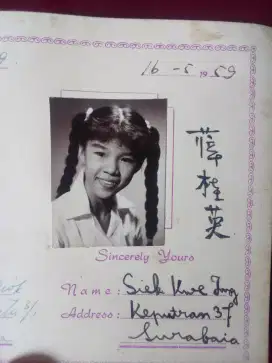 16-5-1959
薛桂英
Sincerely Yours
Name: Sieh Kwe Ing
Address: Keputran 37
Surabaia